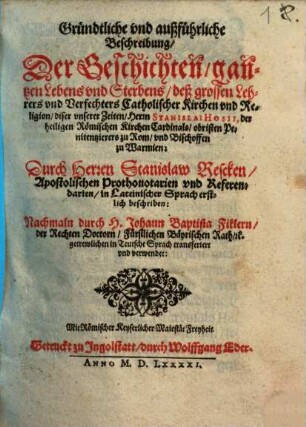 Gründtliche vnd außführliche
Beschreibung/
Der Geschichten/ gan-
tzen Lebens vnd Sterbens/ deß grossen Leh-
rers vnd Verfechters Catholischer Kirchen vnd Re-
ligion/ diser vnserer Zeiten/ Herrn STANISLAI HOSII, der
heiligen Römischen Kirchen Cardinals/ obristen Pe-
nitenzierers zu Rom/ vnd Bischoffen
zu Warmien:
Durch Herren Stanislaw Rescken/
Apostolischen Prothonotarien vnd Referen-
darien/ in Lateinischer Sprach erst-
lich beschriben:
Nachmaln durch H. Johann Baptista Ficklern/
der Rechten Doctorn/ Fürstlichen Bäyrischen Rath/ ꝛc.
getrewlichen in Teutsche Sprach transferiert
vnd verwendet:
Mit Römischer Keyserlicher Maiestät Freyheit
Getruckt zu Ingolstatt/ durch Wolffgang Eder.
ANNO M. D. LXXXXI.